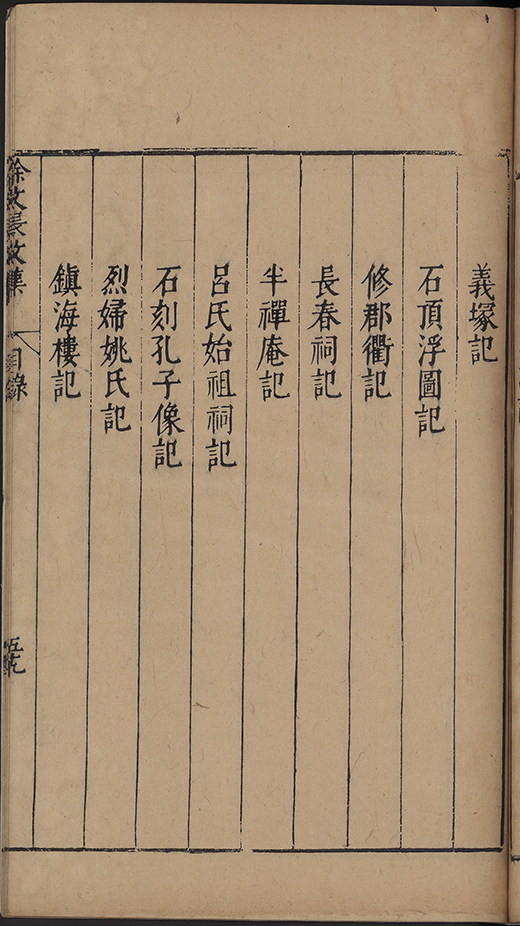 義塚記
石頂浮圖記
修郡衢記
長春祠記
半禪庵記
呂氏始祖祠記
石刻孔子像記
烈婦姚氏記
鎮海樓記
徐文長文集
目錄